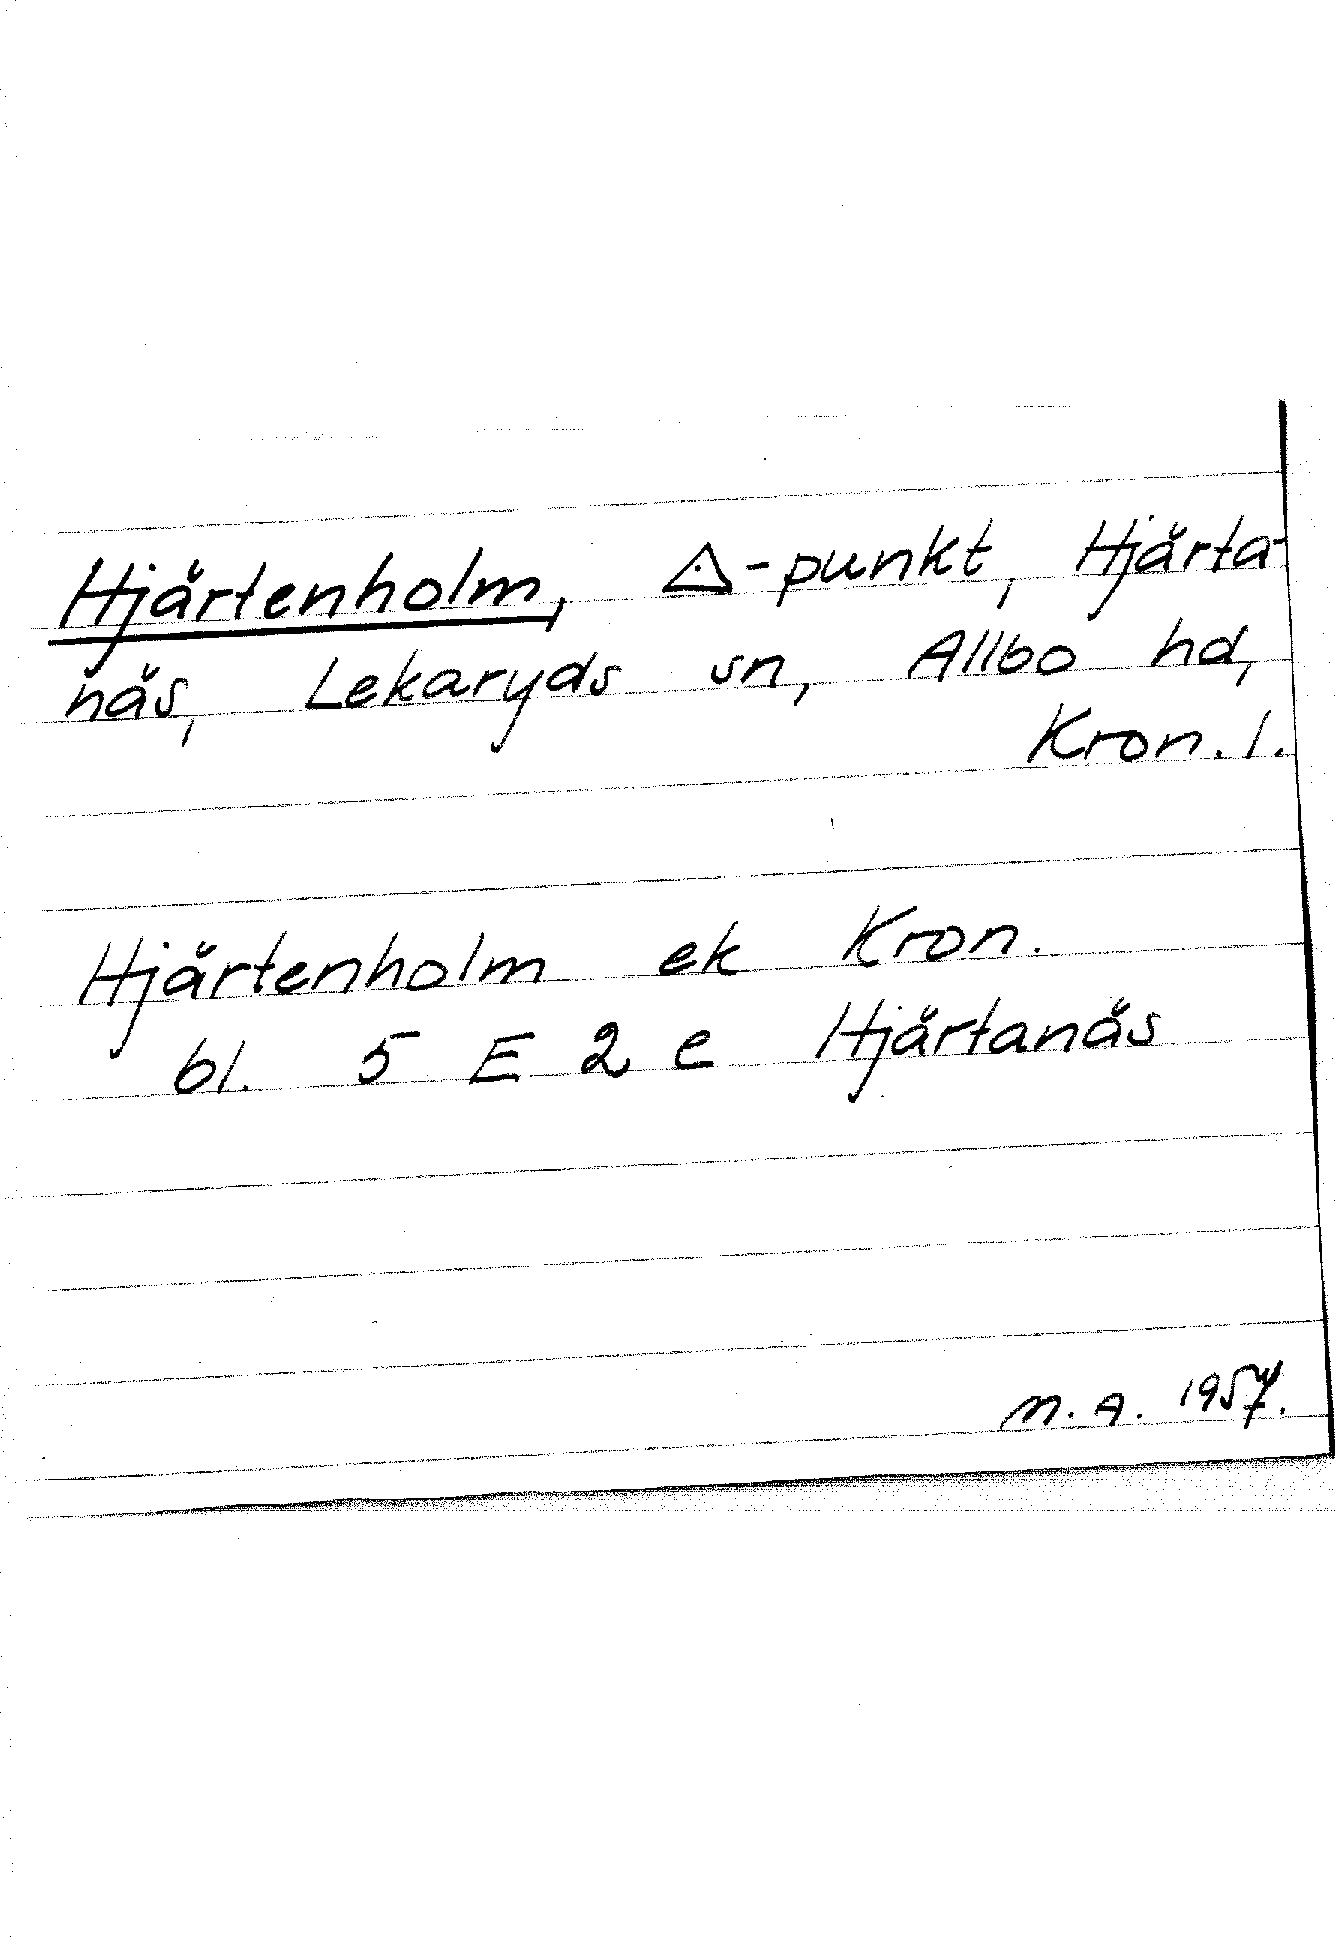 Hjärtenholm, △-punkt, Hjärta-
näs, Lekaryds sn, Allbo hd,
Kron. l.
Hjärtenholm ek Kron.
bl. 5 E 2 e Hjärtanäs
M. A. 1957.